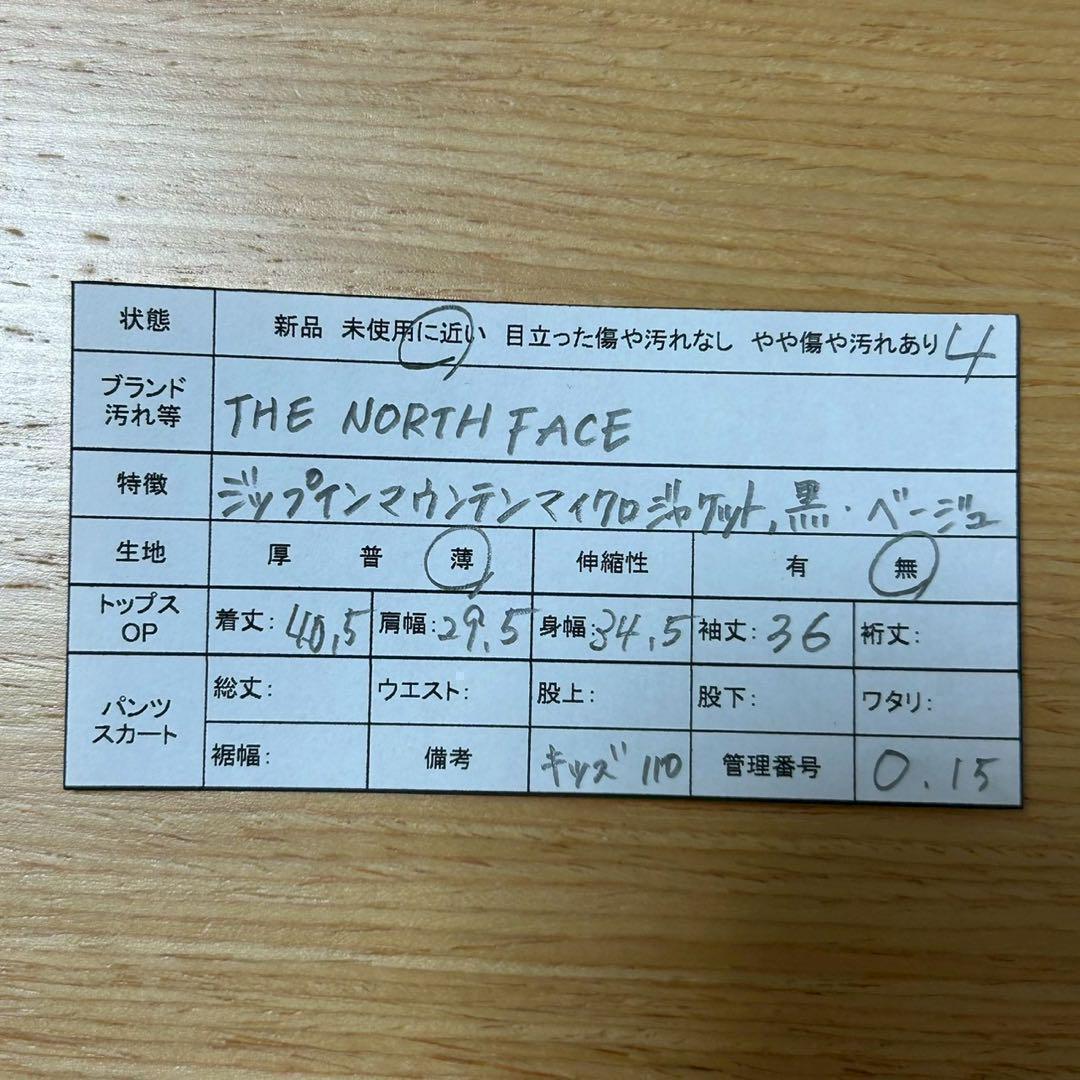 状態 新品 未使用に近い 目立った傷や汚れなし やや傷や汚れあり 4
ブランド
汚れ等 THE NORTH FACE
特徴 ジップインマウンテンマイクロジャケット,黒・ベージュ
生地 厚 普 薄 伸縮性 有 無
トップス
OP 着丈:40,5 肩幅:29.5 身幅:34,5 袖丈:36 裄丈:
パンツ
スカート 総丈: ウエスト: 股上: 股下: ワタリ:
裾幅: 備考 キッズ 110 管理番号 0.15